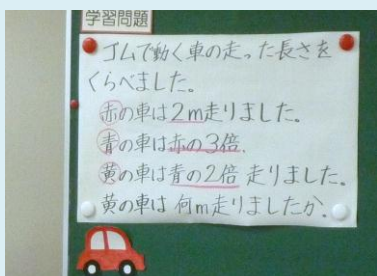 学習問題
ゴムで動く車の走った長さを
くらべました。
赤の車は2m走りました。
青の車は赤の3倍、
黄の車は青の2倍 走りました。
黄の車は 何m走りましたか。